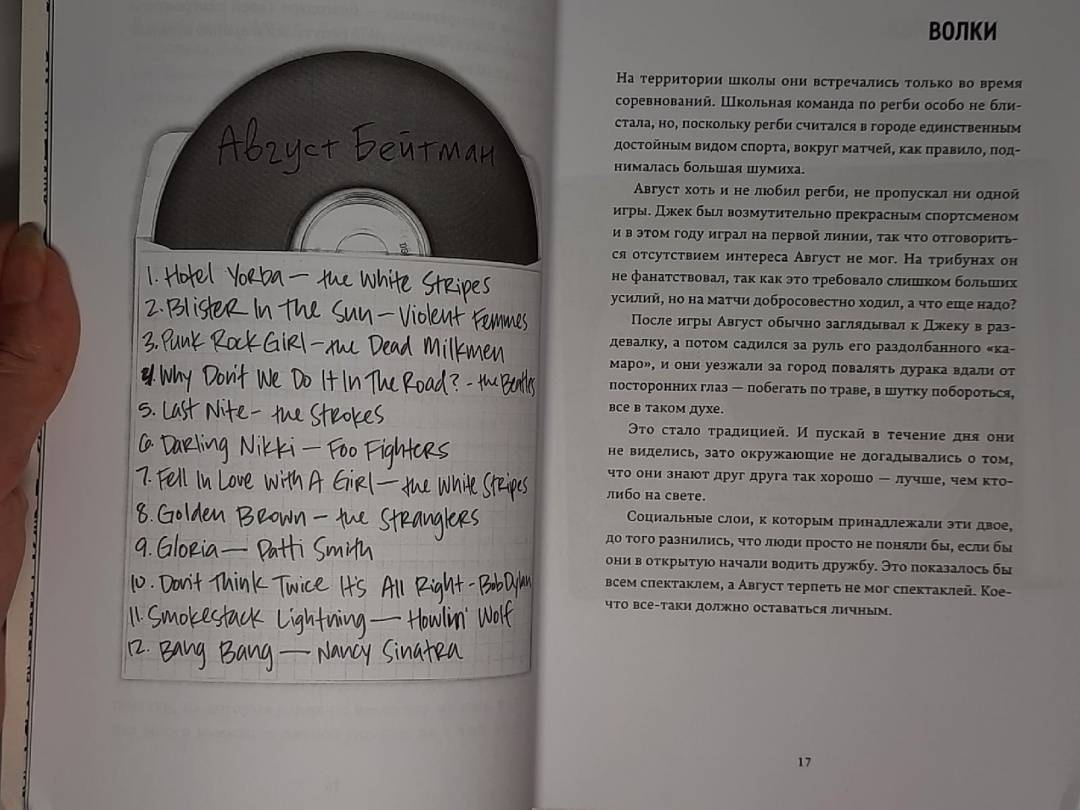 Август Бейтман
1. Hotel Yorba — the White Stripes
2. Blister In The Sun — Violent Femmes
3. Punk Rock Girl — the Dead Milkmen
4. Why Don't We Do It In The Road? - the Beatles
5. Last Nite - the Strokes
6. Darling Nikki — Foo Fighters
7. Fell In Love With A Girl — the White Stripes
8. Golden Brown — the Stranglers
9. Gloria — Patti Smith
10. Don't Think Twice It's All Right - Bob Dylan
11. Smokestack Lightning — Howlin' Wolf
12. Bang Bang — Nancy Sinatra
ВОЛКИ
На территории школы они встречались только во время
соревнований. Школьная команда по регби особо не бли-
стала, но, поскольку регби считался в городе единственным
достойным видом спорта, вокруг матчей, как правило, под-
нималась большая шумиха.
Август хоть и не любил регби, не пропускал ни одной
игры. Джек был возмутительно прекрасным спортсменом
и в этом году играл на первой линии, так что отговорить-
ся отсутствием интереса Август не мог. На трибунах он
не фанатствовал, так как это требовало слишком больших
усилий, но на матчи добросовестно ходил, а что еще надо?
После игры Август обычно заглядывал к Джеку в раз-
девалку, а потом садился за руль его раздолбанного «ка-
маро», и они уезжали за город повалять дурака вдали от
посторонних глаз — побегать по траве, в шутку побороться,
все в таком духе.
Это стало традицией. И пускай в течение дня они
не виделись, зато окружающие не догадывались о том,
что они знают друг друга так хорошо — лучше, чем кто-
либо на свете.
Социальные слои, к которым принадлежали эти двое,
до того разнились, что люди просто не поняли бы, если бы
они в открытую начали водить дружбу. Это показалось бы
всем спектаклем, а Август терпеть не мог спектаклей. Кое-
что все-таки должно оставаться личным.
17